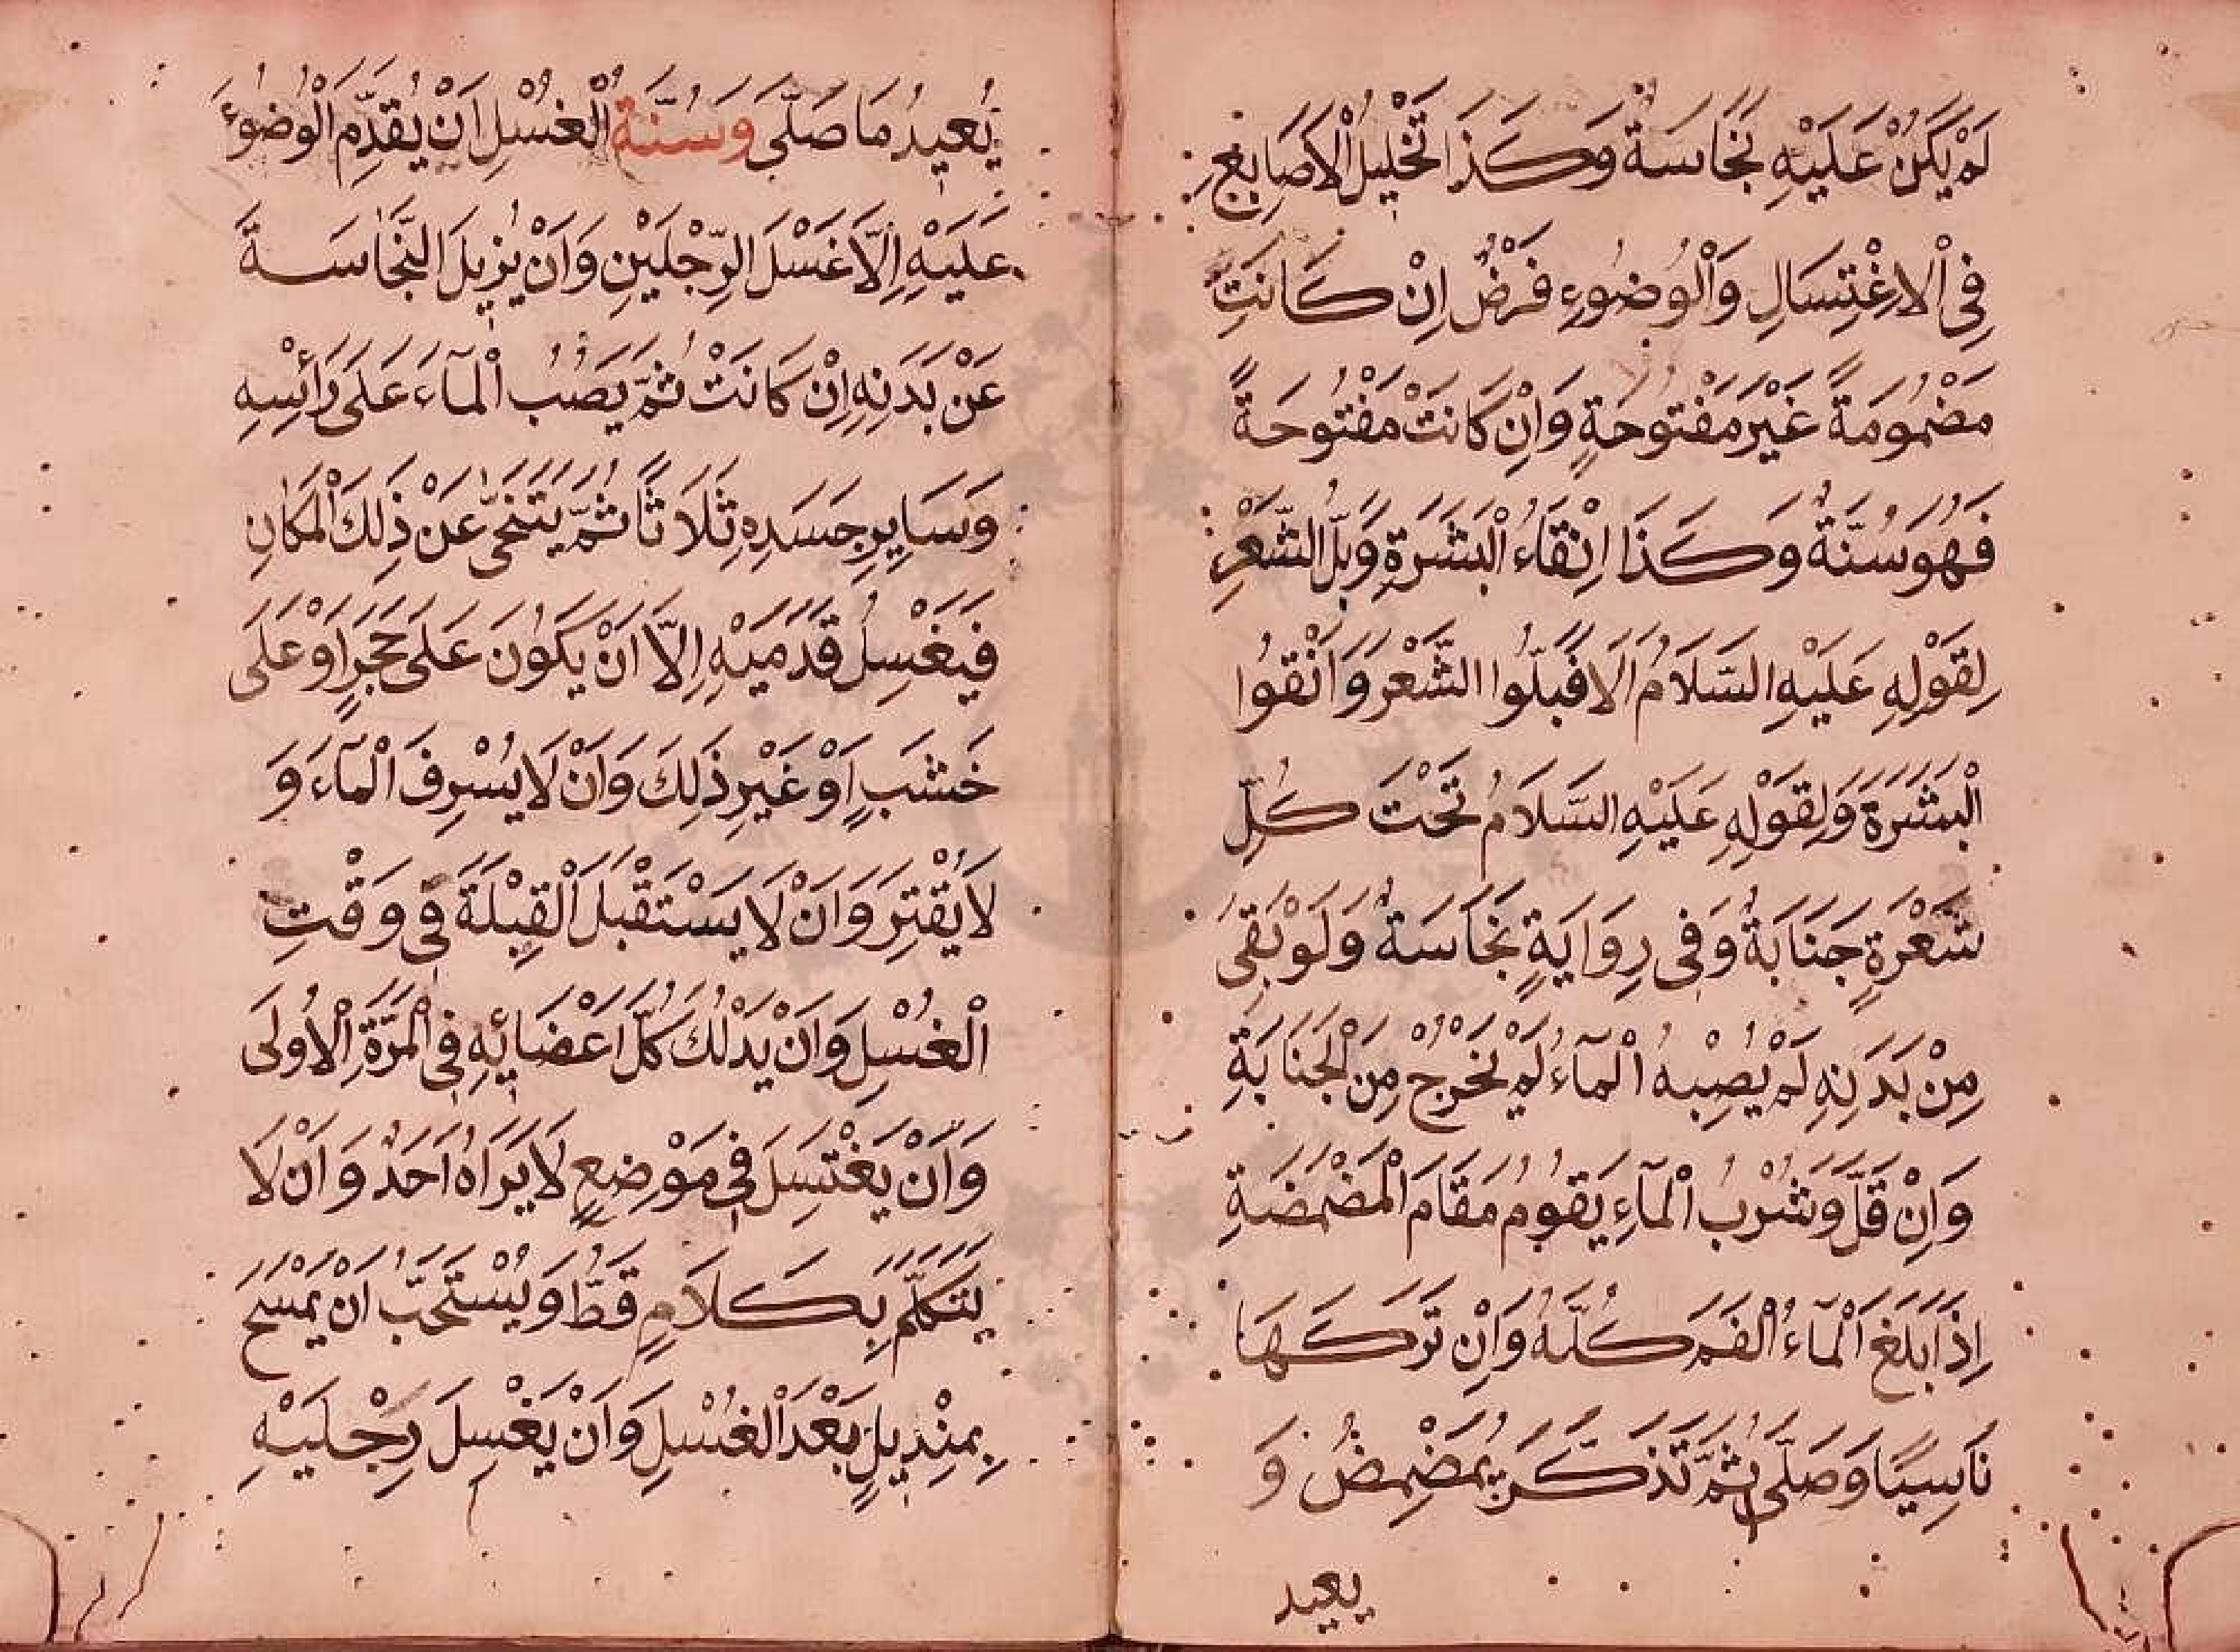 لَمْ يَكُنْ عَلَيْهِ نَجَاسَةٌ وَكَذَا تَخْلِيلُ الْاَصَابِعِ
فِى الْاِغْتِسَالِ وَالْوُضُوءِ فَرْضٌ اِنْ كَانَتْ
مَضْمُومَةً غَيْرَ مَفْتُوحَةٍ وَاِنْ كَانَتْ مَفْتُوحَةً
فَهُوَ سُنَّةٌ وَكَذَا اِنْقَاءُ الْبَشَرَةِ وَبَلُّ الشَّعْرِ
لِقَوْلِهِ عَلَيْهِ السَّلَامُ اَلَا فَبَلُّوا الشَّعْرَ وَاَنْقُوا
الْبَشَرَةَ وَلِقَوْلِهِ عَلَيْهِ السَّلَامُ تَحْتَ كُلِّ
شَعْرَةٍ جَنَابَةٌ وَفِى رِوَايَةٍ نَجَاسَةٌ وَلَوْ بَقِىَ
مِنْ بَدَنِهِ لَمْ يُصِبْهُ الْمَآءُ لَمْ يَخْرُجْ مِنَ الْجَنَابَةِ
وَاِنْ قَلَّ وَشُرْبُ الْمَآءِ يَقُومُ مَقَامَ الْمَضْمَضَةِ
اِذَا بَلَغَ الْمَآءُ الْفَمَ كُلَّهُ وَاِنْ تَرَكَهَا
نَاسِيًا وَصَلَّى ثُمَّ تَذَكَّرَ يُمَضْمِضُ وَ
يعيد
يُعِيدُ مَا صَلَّى وَسُنَّةُ الْغُسْلِ اَنْ يُقَدِّمَ الْوُضُوءَ
عَلَيْهِ اِلَّا غَسْلَ الرِّجْلَيْنِ وَاَنْ يُزِيلَ النَّجَاسَةَ
عَنْ بَدَنِهِ اِنْ كَانَتْ ثُمَّ يَصُبُّ الْمَآءَ عَلَى رَأْسِهِ
وَسَايِرِ جَسَدِهِ ثَلَاثًا ثُمَّ يَتَنَحَّى عَنْ ذَلِكَ الْمَكَانِ
فَيَغْسِلُ قَدَمَيْهِ اِلَّا اَنْ يَكُونَ عَلَى حَجَرٍ اَوْ عَلَى
خَشَبٍ اَوْ غَيْرِ ذَلِكَ وَاَنْ لَا يُسْرِفَ الْمَآءَ وَ
لَا يُقْتِرَ وَاَنْ لَا يَسْتَقْبِلَ الْقِبْلَةَ فِى وَقْتِ
الْغُسْلِ وَاَنْ يَدْلُكَ كُلَّ اَعْضَائِهِ فِى الْمَرَّةِ الْاُولَى
وَاَنْ يَغْتَسِلَ فِى مَوْضِعٍ لَا يَرَاهُ اَحَدٌ وَاَنْ لَا
يَتَكَلَّمَ بِكَلَامٍ قَطُّ وَيُسْتَحَبُّ اَنْ يَمْسَحَ
بِمِنْدِيلٍ بَعْدَ الْغُسْلِ وَاَنْ يَغْسِلَ رِجْلَيْهِ